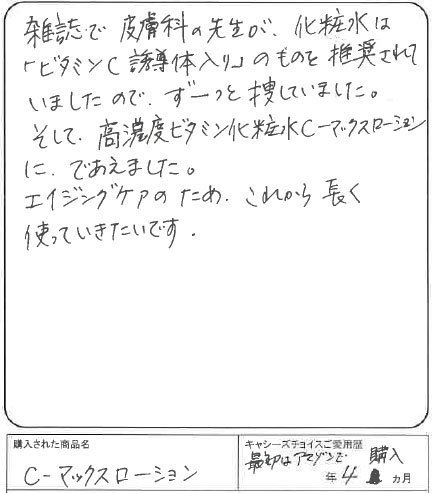 雑誌で皮膚科の先生が、化粧水は
「ビタミンC誘導体入り」のものを推奨されて
いましたので、ずーっと捜していました。
そして、高濃度ビタミン化粧水C-マックスローション
に、であえました。
エイジングケアのため、これから長く
使っていきたいです。
購入された商品名
C-マックスローション
キャシーズチョイスご愛用歴
最初はアマゾンで購入
年4ヵ月